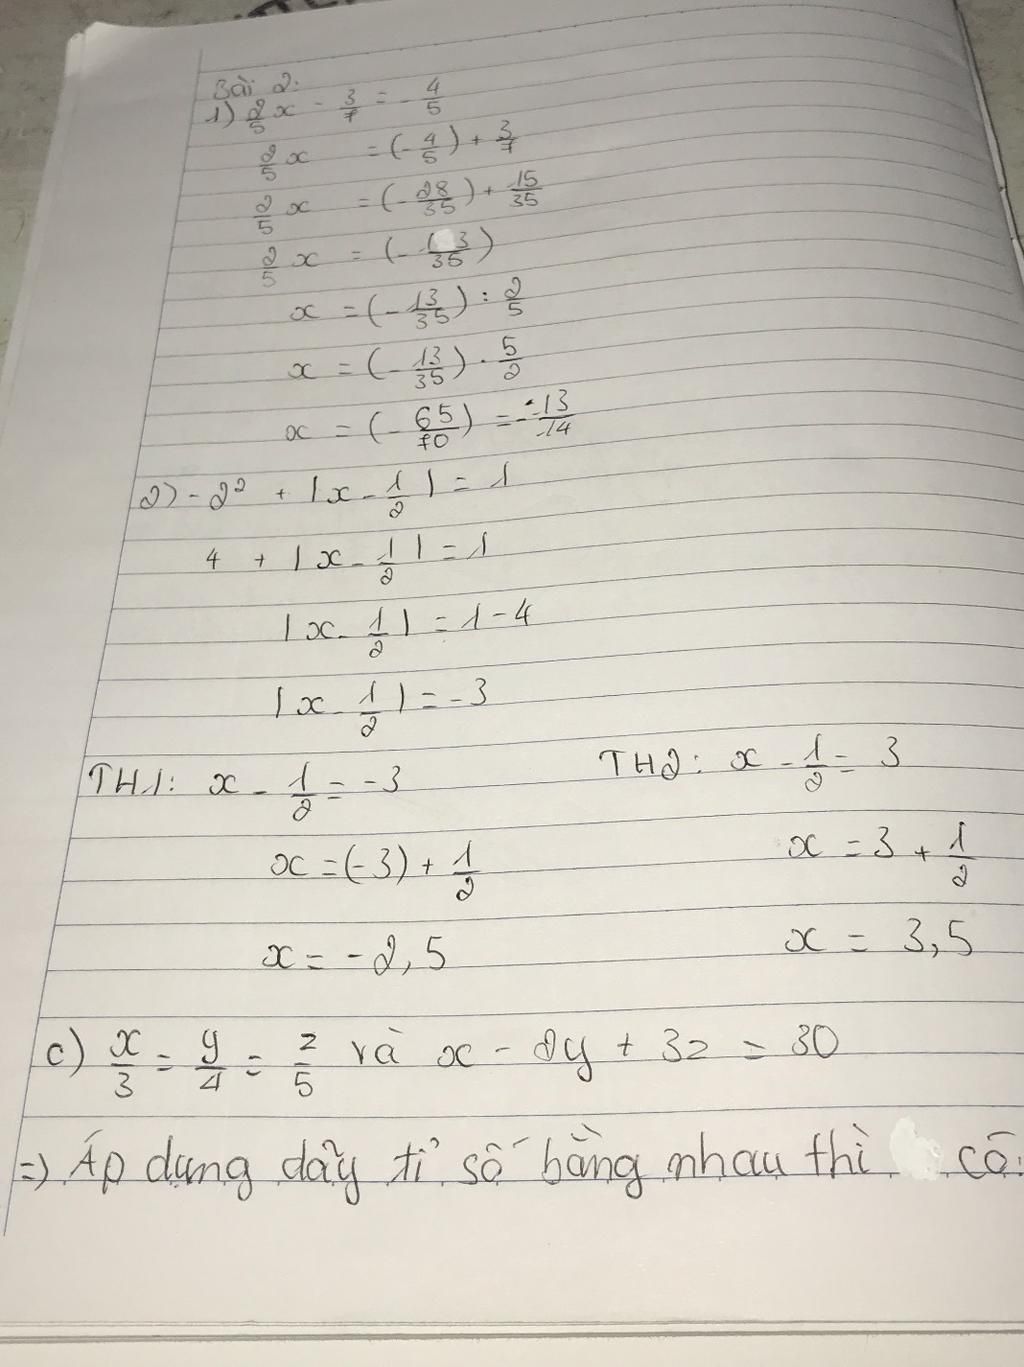 Bài 2:
1) 2/5 x - 3/7 = - 4/5
2/5 x = (- 4/5) + 3/7
2/5 x = (- 28/35) + 15/35
2/5 x = (- 13/35)
x = (- 13/35) : 2/5
x = (- 13/35) . 5/2
x = (- 65/70) = - 13/14
2) - 2² + |x - 1/2| = 1
4 + |x - 1/2| = 1
|x - 1/2| = 1 - 4
|x - 1/2| = -3
TH1: x - 1/2 = -3 TH2: x - 1/2 = 3
x = (-3) + 1/2 x = 3 + 1/2
x = -2,5 x = 3,5
c) x/3 = y/4 = z/5 và x - 2y + 3z = 30
=> Áp dụng dãy tỉ số bằng nhau thì có: